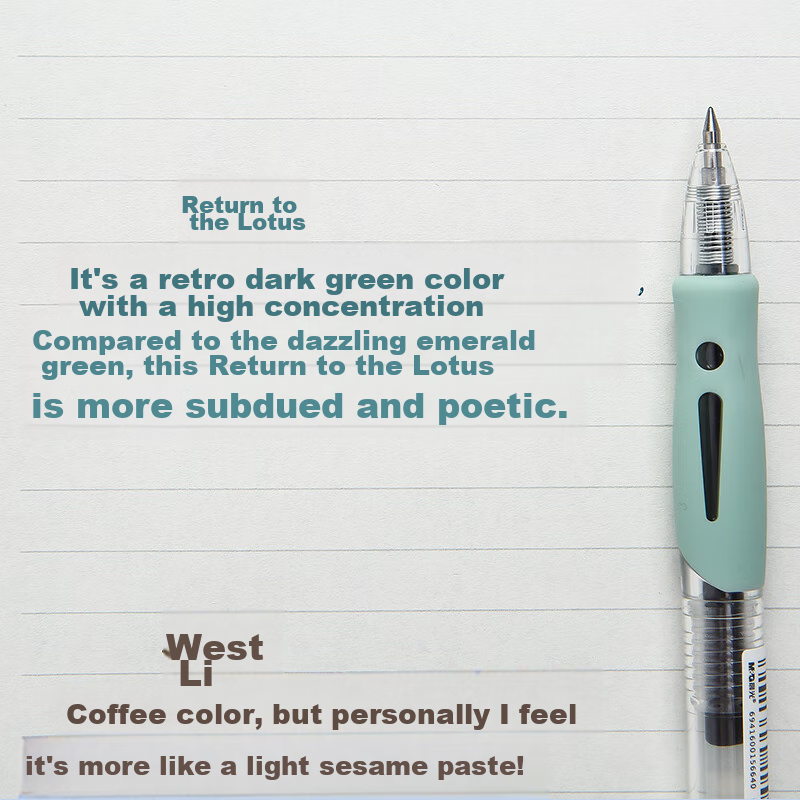 Return to
the Lotus
It's a retro dark green color
with a high concentration
,
Compared to the dazzling emerald
green, this Return to the Lotus
is more subdued and poetic.
West
Li
Coffee color, but personally I feel
it's more like a light sesame paste!
M&G晨光
6941600156640